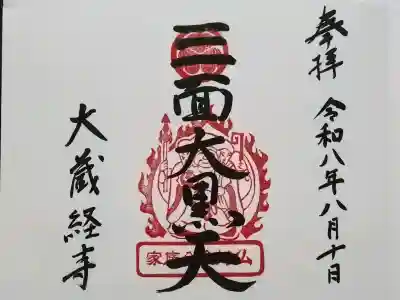 奉拝 令和八年八月十日
三面大黒天
大蔵経寺